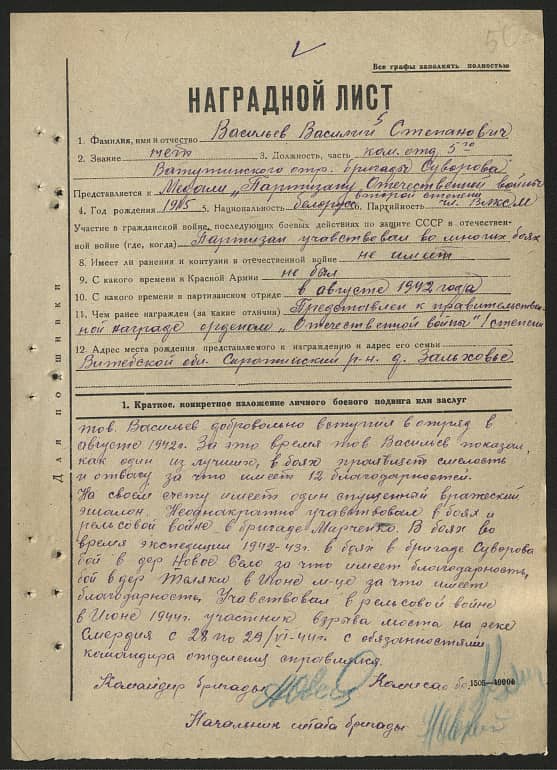 50
Все графы заполнять полностью
НАГРАДНОЙ ЛИСТ
1. Фамилия, имя и отчество Васильев Василий Степанович
2. Звание нет 3. Должность, часть ком. отд. 5го
Ватутинского отр. бригады Суворова
Представляется к Медали „Партизану Отечественной войны
второй степени
4. Год рождения 1915 5. Национальность белорус 6. Партийность чл. ВЛКСМ
Участие в гражданской войне, последующих боевых действиях по защите СССР в отечествен-
ной войне (где, когда) Партизан учавствовал во многих боях
8. Имеет ли ранения и контузии в отечественной войне не имеет
9. С какого времени в Красной Армии не был
10. С какого времени в партизанском отряде в августе 1942 года
11. Чем ранее награжден (за какие отличия) Представлен к правительствен-
ной награде орденом „Отечественной война" I степени
12. Адрес места рождения представляемого к награждению и адрес его семьи
Витебской обл. Сиротинский р-н. д. Зальховье
Для подшивки
1. Краткое, конкретное изложение личного боевого подвига или заслуг
тов. Васильев добровольно вступил в отряд в
августе 1942г. За это время тов. Васильев показал,
как один из лучших, в боях проявляет смелость
и отвагу за что имеет 12 благодарностей.
На своём счету имеет один спущенный вражеский
эшалон. Неоднакратно учавствовал в боях и
рельсовой войне в бригаде Мирченко. В боях во
время экспедиции 1942-43г. в боях в бригаде Суворова
бой в дер Новое Село за что имеет благодарность,
бой в дер Теляки в Июне м-це за что имеет
благодарность, Учавствовал в рельсовой войне
в Июне 1944г. участник взрыва моста на реке
Смердия с 28 по 29/VI-44г. с обязанностями
командира отделения справлялся.
Командир бригады Комисар бр. 1505—40000
Начальник штаба бригады